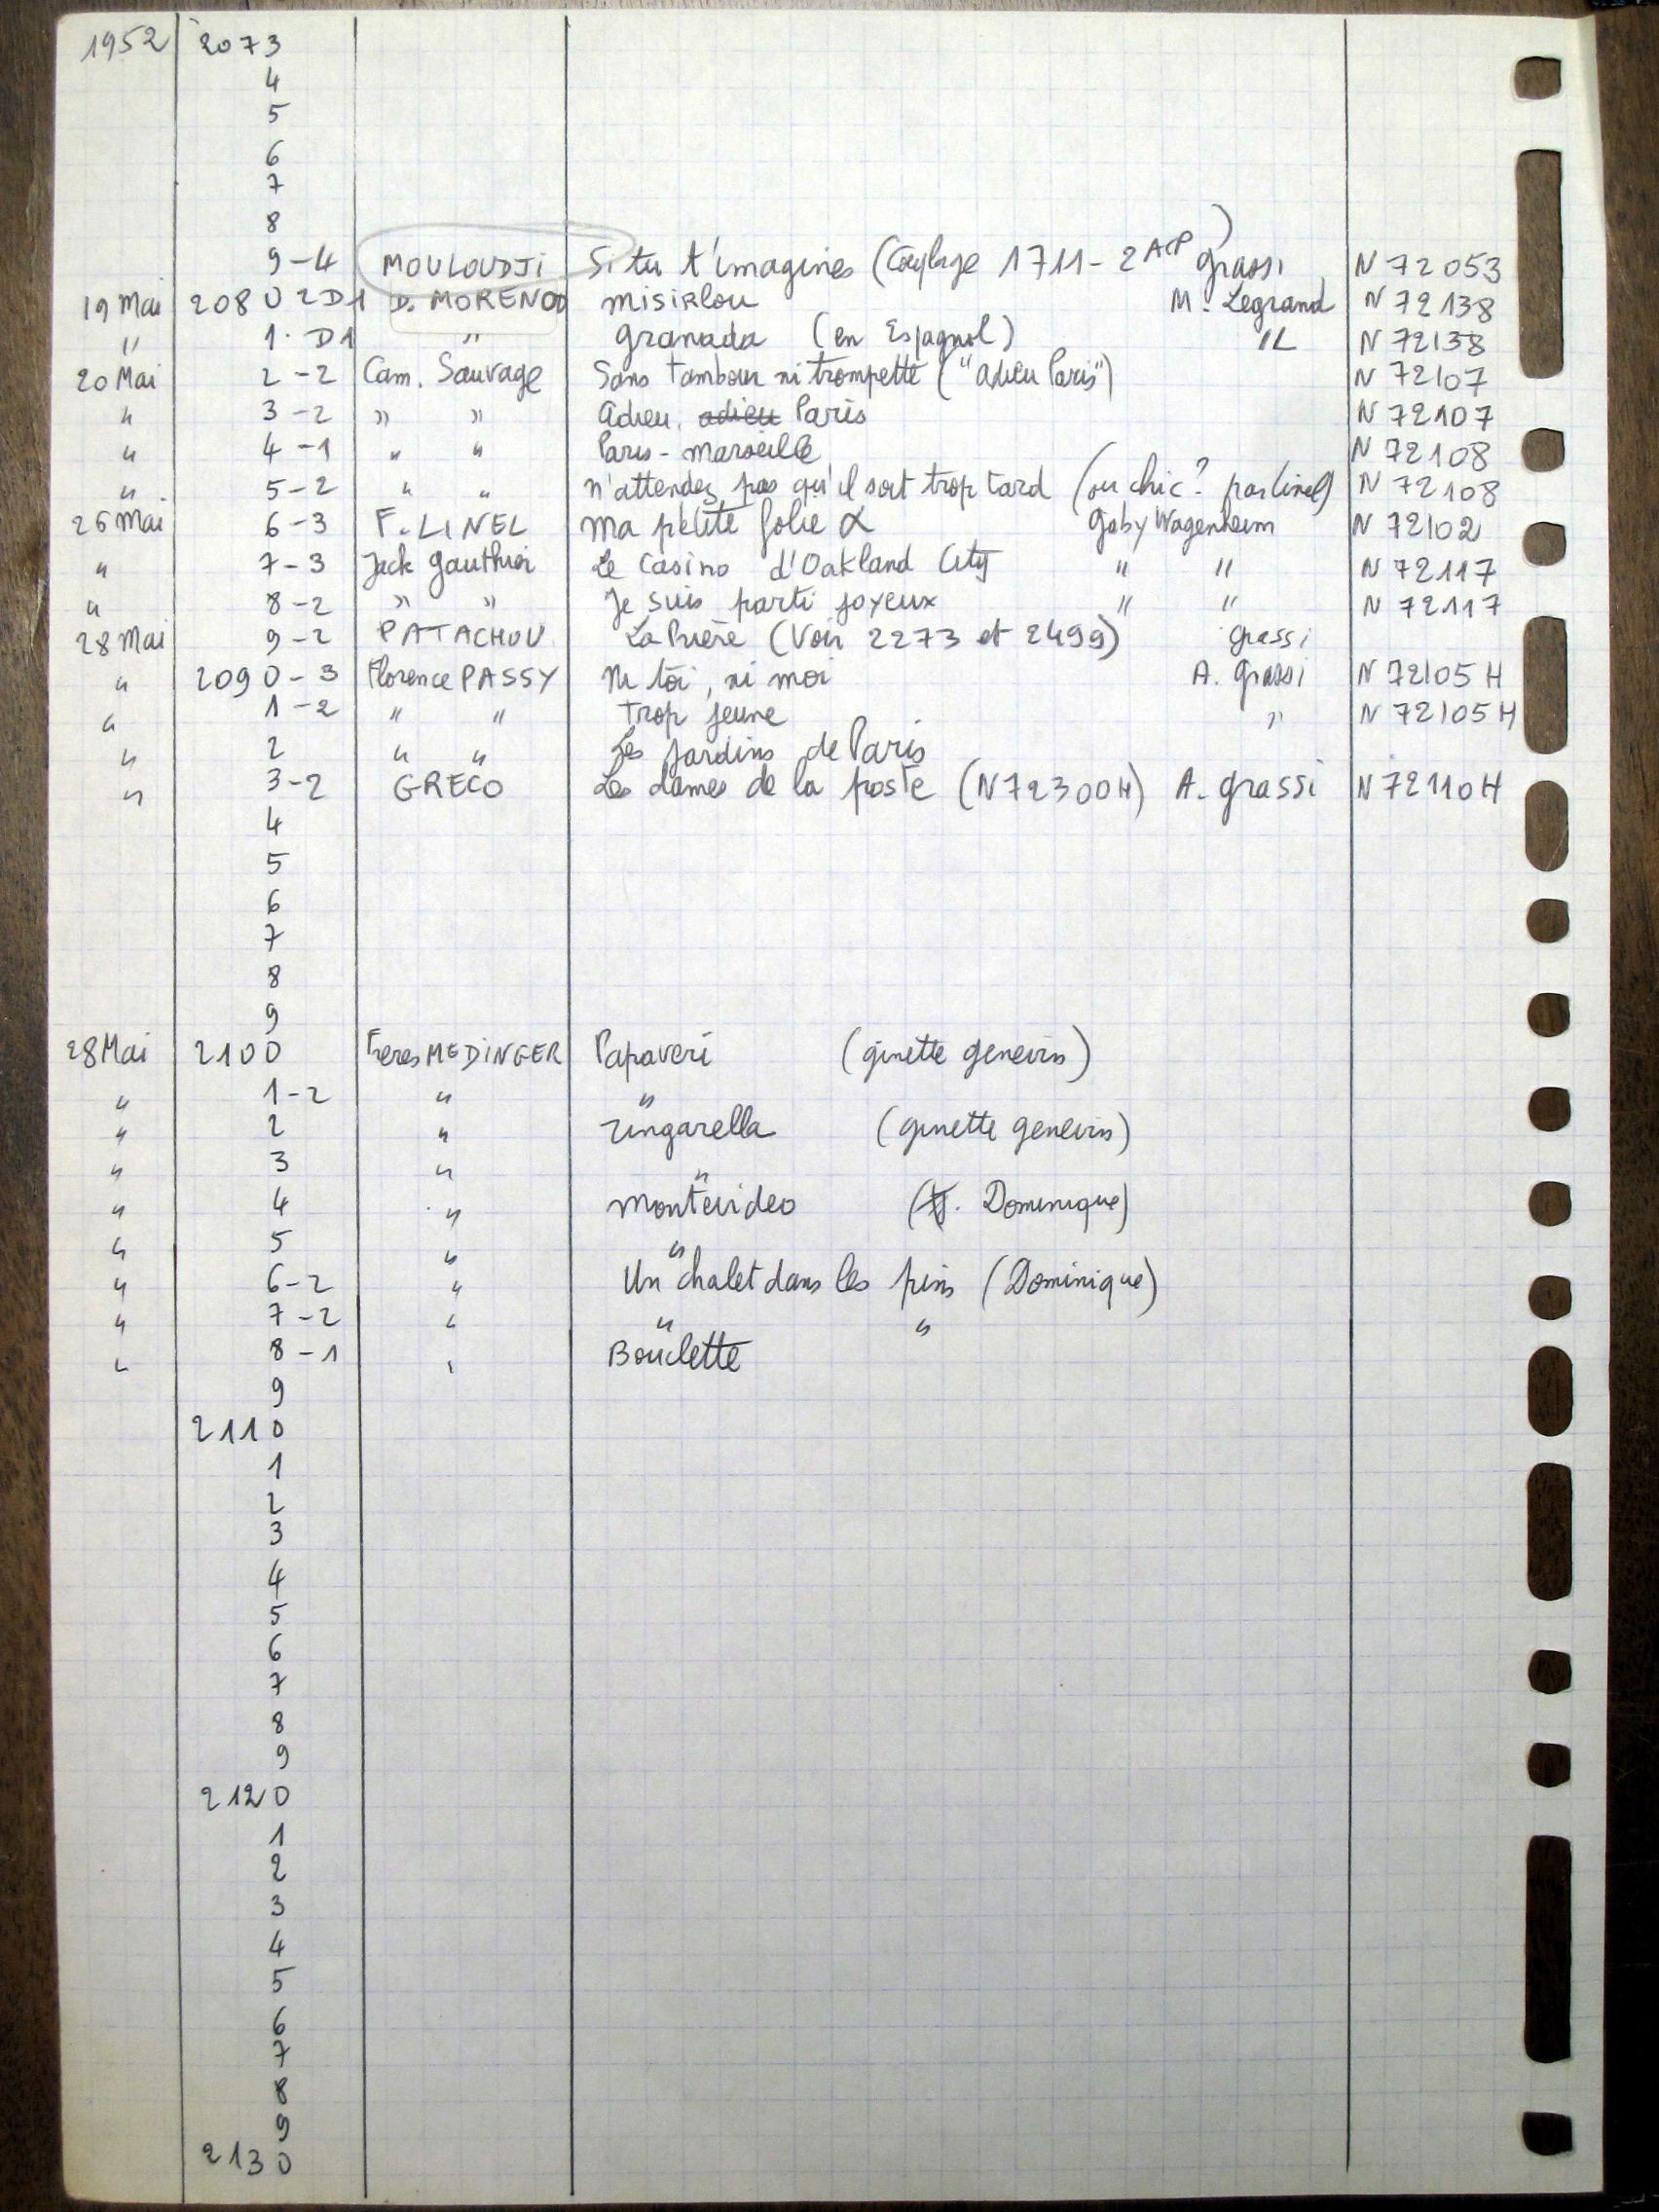 1952 2073
4
5
6
7
8
9-4 MOULOUDJI Si tu t'imagines (Couplage 1711-2 ACP) grassi N 72053
19 Mai 2080 2D1 D. MORENO misirlou M. Legrand N 72138
" 1. D1 " granada (en Espagnol) " N 72138
20 Mai 2-2 Cam. Sauvage Sans tambour ni trompette ("adieu Paris") N 72107
" 3-2 " " Adieu, adieu Paris N 72107
" 4-1 " " Paris-marseille N 72108
" 5-2 " " n'attendez pas qu'il soit trop tard (ou chic? par Linel) N 72108
26 Mai 6-3 F. LINEL ma petite folie α Gaby Wagenheim N 72102
" 7-3 Jack Gauthier Le Casino d'Oakland City " " N 72117
" 8-2 " " Je suis parti joyeux " " N 72117
28 Mai 9-2 PATACHOU La Prière (Voir 2273 et 2499) grassi
" 2090-3 Florence PASSY Ni toi, ni moi A. grassi N 72105 H
" 1-2 " " trop jeune " N 72105 H
" 2 " " Les jardins de Paris
" 3-2 GRECO Les dames de la poste (N72300H) A. grassi N 72110H
4
5
6
7
8
9
28 Mai 2100 Freres MEDINGER Papaveri (ginette genevris)
" 1-2 " "
" 2 " Zingarella (ginette genevris)
" 3 " "
" 4 " montevideo ( . Dominique)
" 5 " "
" 6-2 " Un chalet dans les pins (Dominique)
" 7-2 " " "
" 8-1 " Bouclette
9
2110
1
2
3
4
5
6
7
8
9
2120
1
2
3
4
5
6
7
8
9
2130